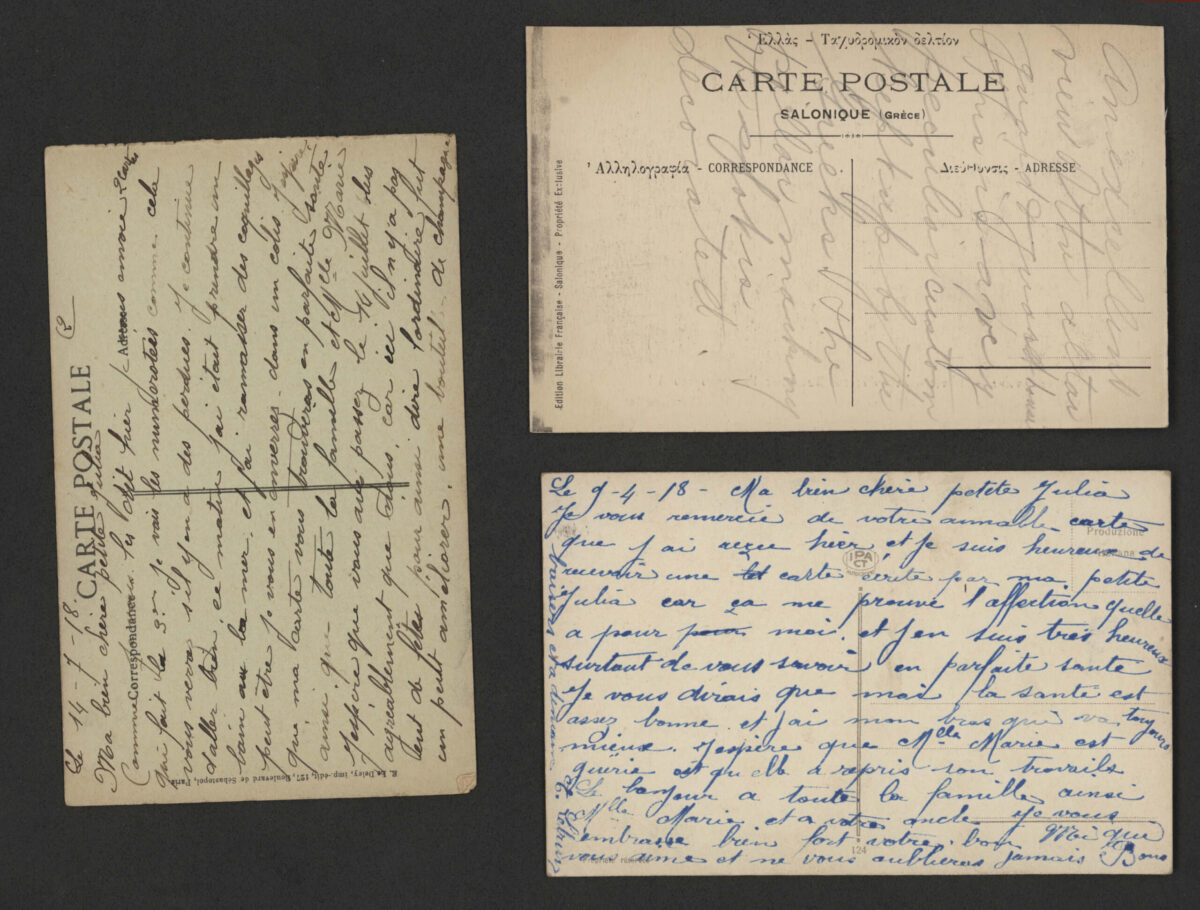 CARTE POSTALE
Correspondance
Adresse
Le 14-7-18.
Ma bien chère petite Julia
Comme je vous l'ai dit hier
qui fait la 3 en je vais les numérotées comme cela
vous verra s'il y en a des perdues. Je continue
d'aller bien ce matin j'ai était prendre un
bain au la mer et j'ai ramasser des coquilles
peut être je vous en enverres dans un colis
que ma carte vous trouveras en parfaite santé
ainsi que toute la famille et Mlle Marie
J'espère que vous avez passez le 14 juillet plus
agréablement que nous, car ici il n'y a pas
tant de fêtes pour ainsi dire l'ordinaire fut
un peut améliorer, une bouteille de champagne
E. Le Deley, imp.-édit., 127, Boulevard de Sébastopol, Paris
Ἑλλὰς - Ταχυδρομικὸν δελτίον
CARTE POSTALE
SALONIQUE (GRÈCE)
Ἀλληλογραφία - CORRESPONDANCE
Διεύθυνσις - ADRESSE
Edition Librairie Française - Salonique - Propriété Exclusive
an excellent
view of the altar
this is a very
peculiar custom
kept up by the
Greeks & the
pillar monkey
is also
decorated
Le 9-4-18 - Ma bien chère petite Julia
Je vous remercie de votre aimable carte
que j'ai reçue hier et je suis heureux de
recevoir une carte écrite par ma petite
Julia car ça me prouve l'affection quelle
a pour pour moi. et j'en suis très heureux
surtout de vous savoir en parfaite santé
Je vous dirais que moi la santé est
assez bonne et j'ai mon bras qui va toujours
mieux. J'espère que Mlle Marie est
guérie et qu'elle a repris son travails
Le bonjour a toute la famille ainsi
Mlle Marie et a votre oncle Je vous
embrasse bien fort votre bon Mi qui
vous aime et ne vous oublieras jamais
Produzione
Italiana
IPA CT
124